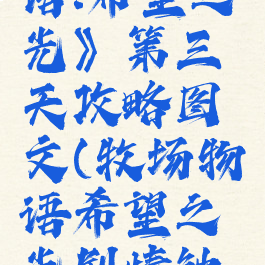 语:希望之
光》第三
天攻略图
文(牧场物
语希望之
光剧情触